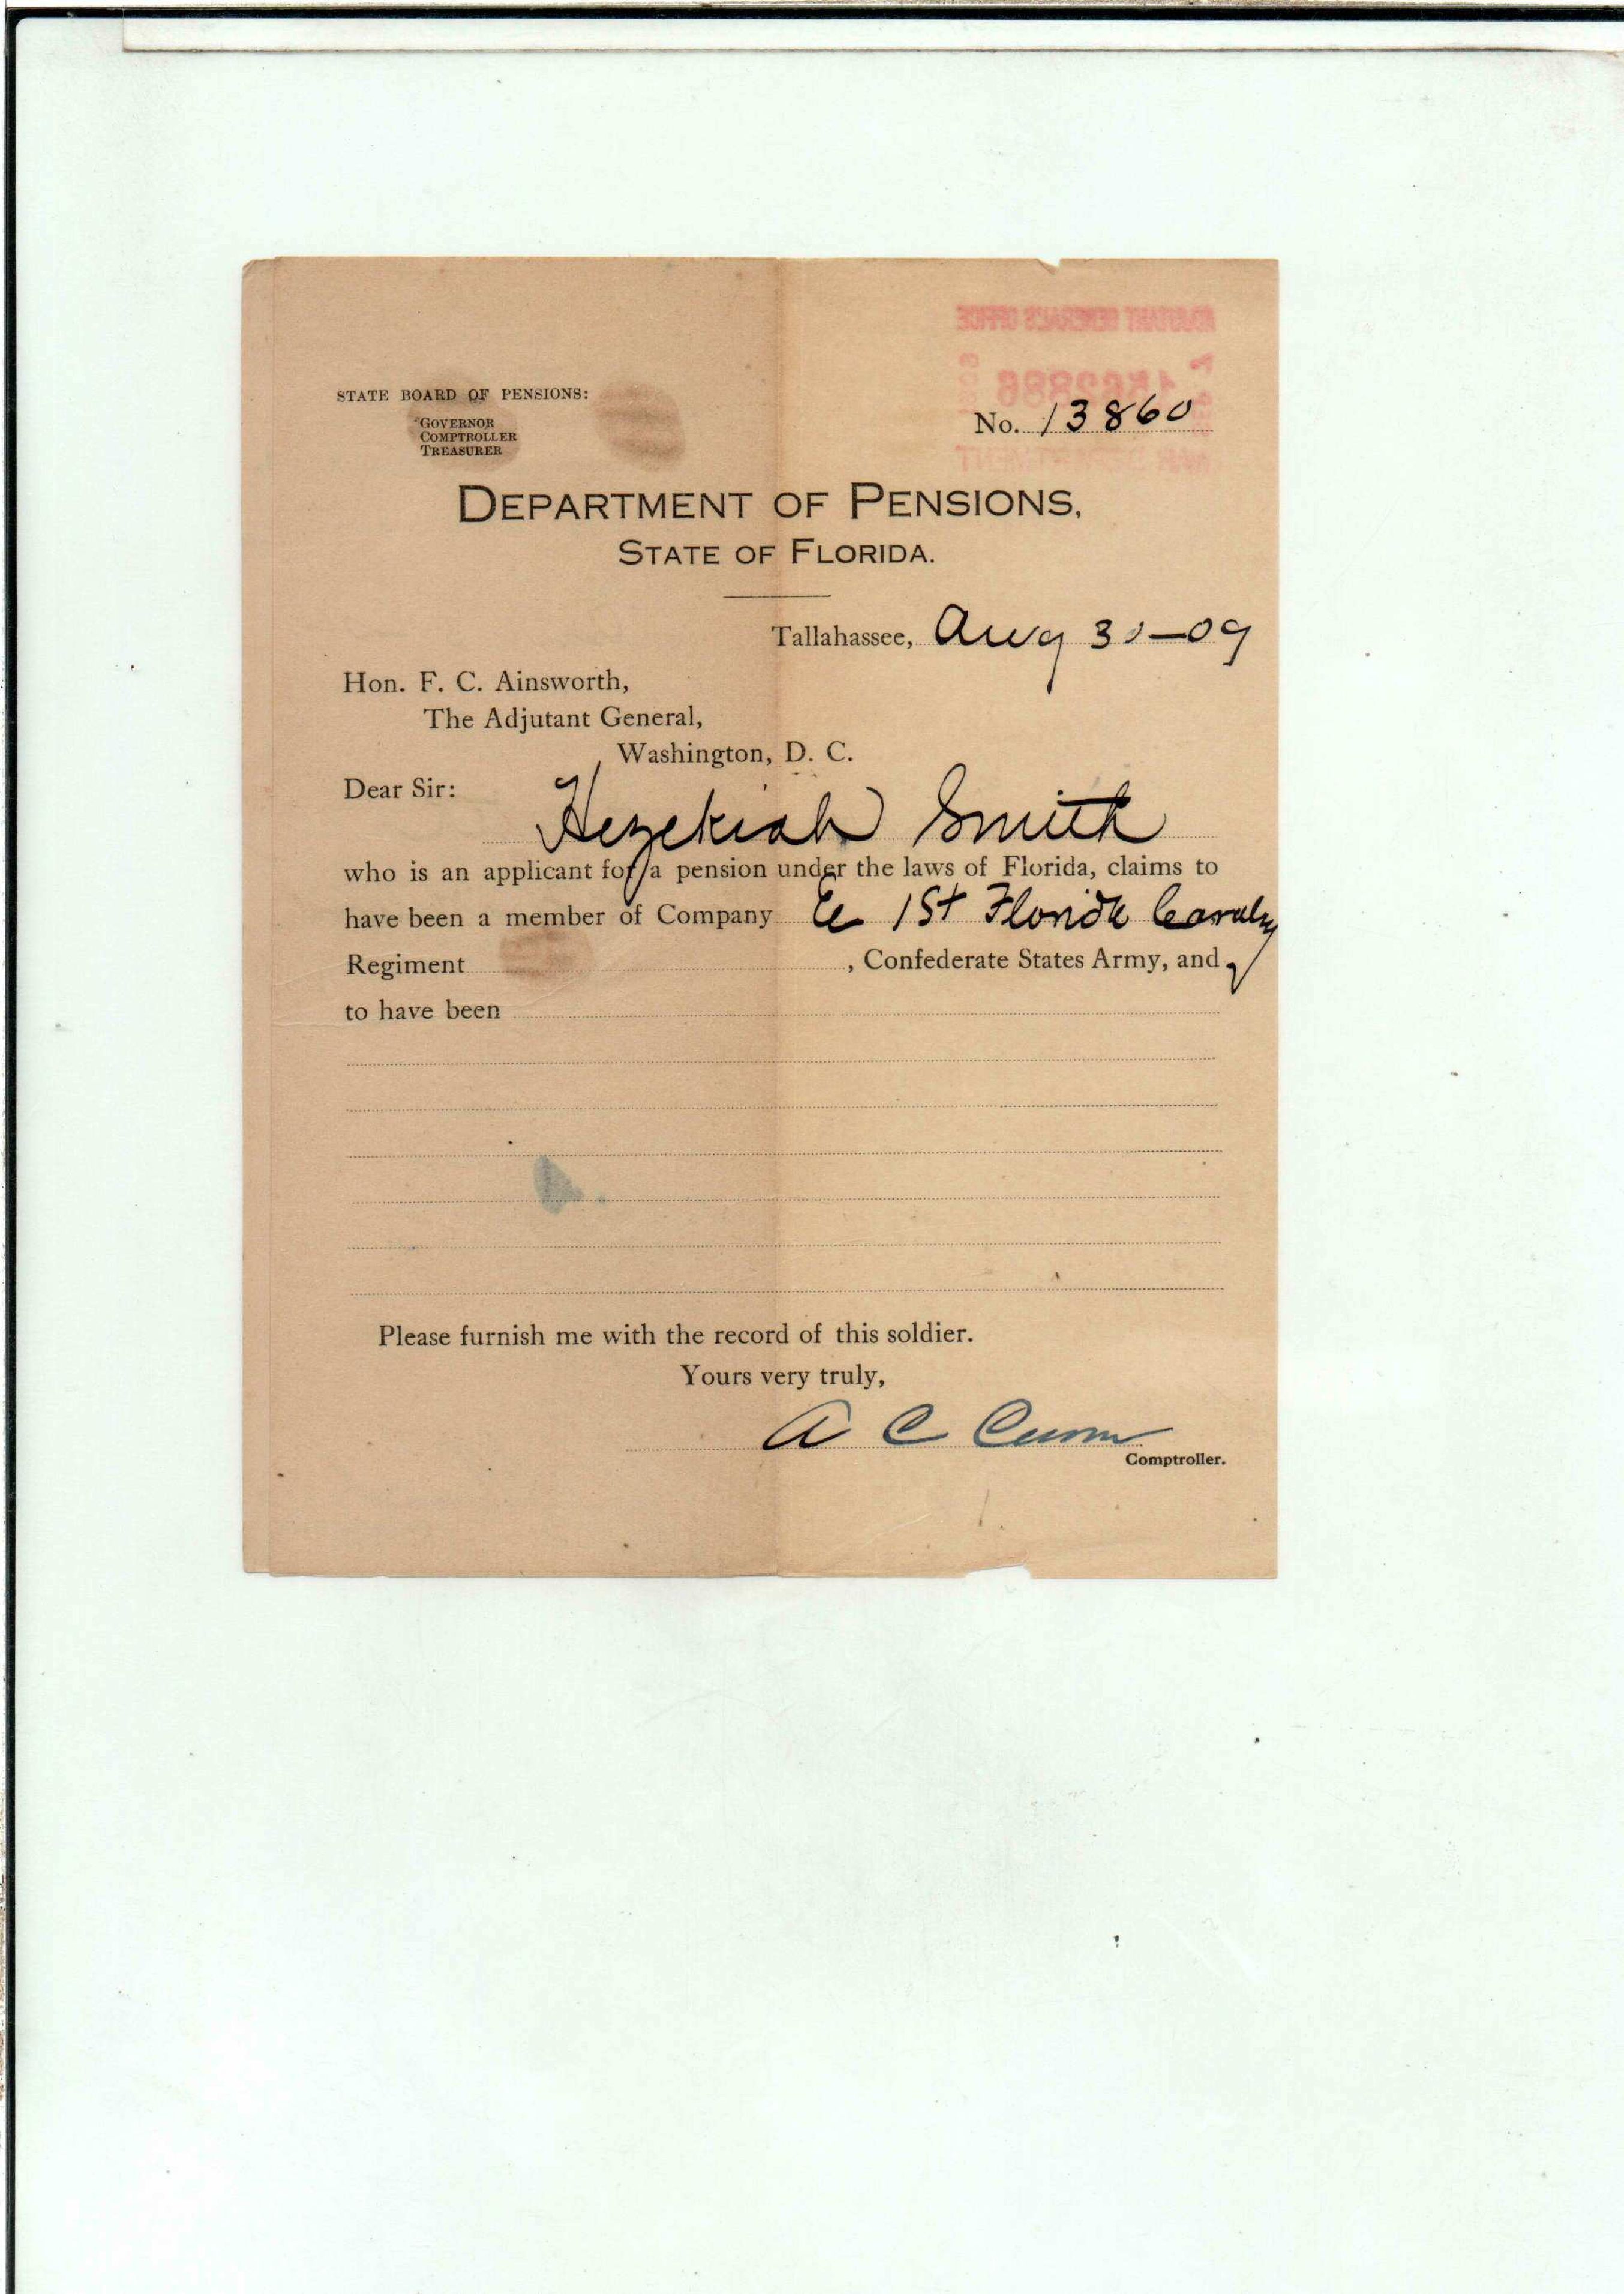 STATE BOARD OF PENSIONS:
GOVERNOR
COMPTROLLER
TREASURER
ADJUTANT GENERAL'S OFFICE
WAR DEPARTMENT
No. 13860
DEPARTMENT OF PENSIONS,
STATE OF FLORIDA.
Tallahassee, Aug 30-09
Hon. F. C. Ainsworth,
The Adjutant General,
Washington, D. C.
Dear Sir:
Hezekiah Smith
who is an applicant for a pension under the laws of Florida, claims to
have been a member of Company 1st Florida Cavalry
Regiment , Confederate States Army, and
to have been
Please furnish me with the record of this soldier.
Yours very truly,
A C Croom
Comptroller.